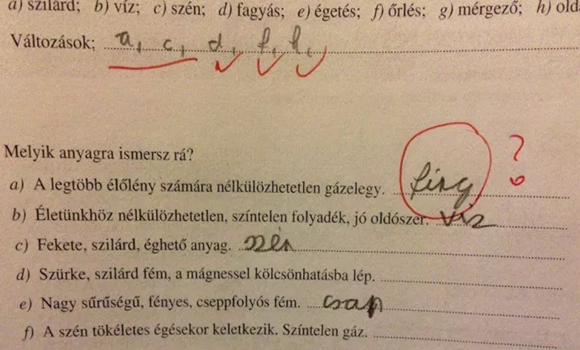 a) szilárd; b) víz; c) szén; d) fagyás; e) égetés; f) őrlés; g) mérgező; h) old
Változások: a, c, d, f, h,
Melyik anyagra ismersz rá?
a) A legtöbb élőlény számára nélkülözhetetlen gázelegy. fing ?
b) Életünkhöz nélkülözhetetlen, színtelen folyadék, jó oldószer. víz
c) Fekete, szilárd, éghető anyag. szén
d) Szürke, szilárd fém, a mágnessel kölcsönhatásba lép.
e) Nagy sűrűségű, fényes, cseppfolyós fém. csap
f) A szén tökéletes égésekor keletkezik. Színtelen gáz.